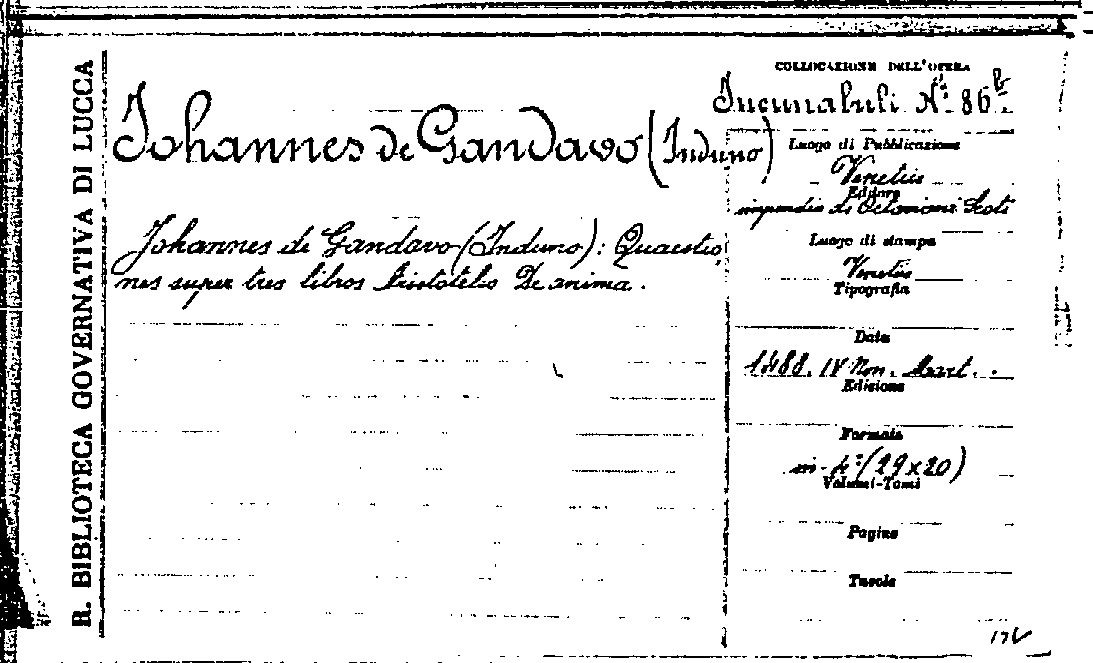 R. BIBLIOTECA GOVERNATIVA DI LUCCA
Johannes de Gandavo (Induno)
Johannes de Gandavo (Induno): Quaestio
nes super tres libros Aristotelis De anima.
COLLOCAZIONE DELL'OPERA
Incunabuli N.º 86 b.
Luogo di Pubblicazione
Venetiis
Editore
impendio di Octaviani Scoti
Luogo di stampa
Venetiis
Tipografia
Data
1488. IV Non. Mart.
Edizione
Formato
in-4º (29x20)
Volumi-Tomi
Pagine
Tavole